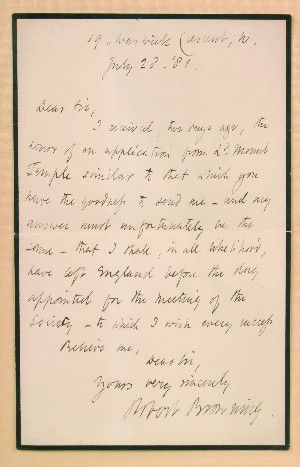 19. Warwick Crescent, W.
July 28. '81.
Dear Sir,
I received, two days ago, the
honor of an application from Ld. Mount
Temple similar to that which you
have the goodness to send me – and my
answer must unfortunately be the
same – that I shall, in all likelihood,
have left England before the day
appointed for the meeting of the
Society – to which I wish every success.
Believe me,
Dear Sir,
Yours very sincerely
Robert Browning.